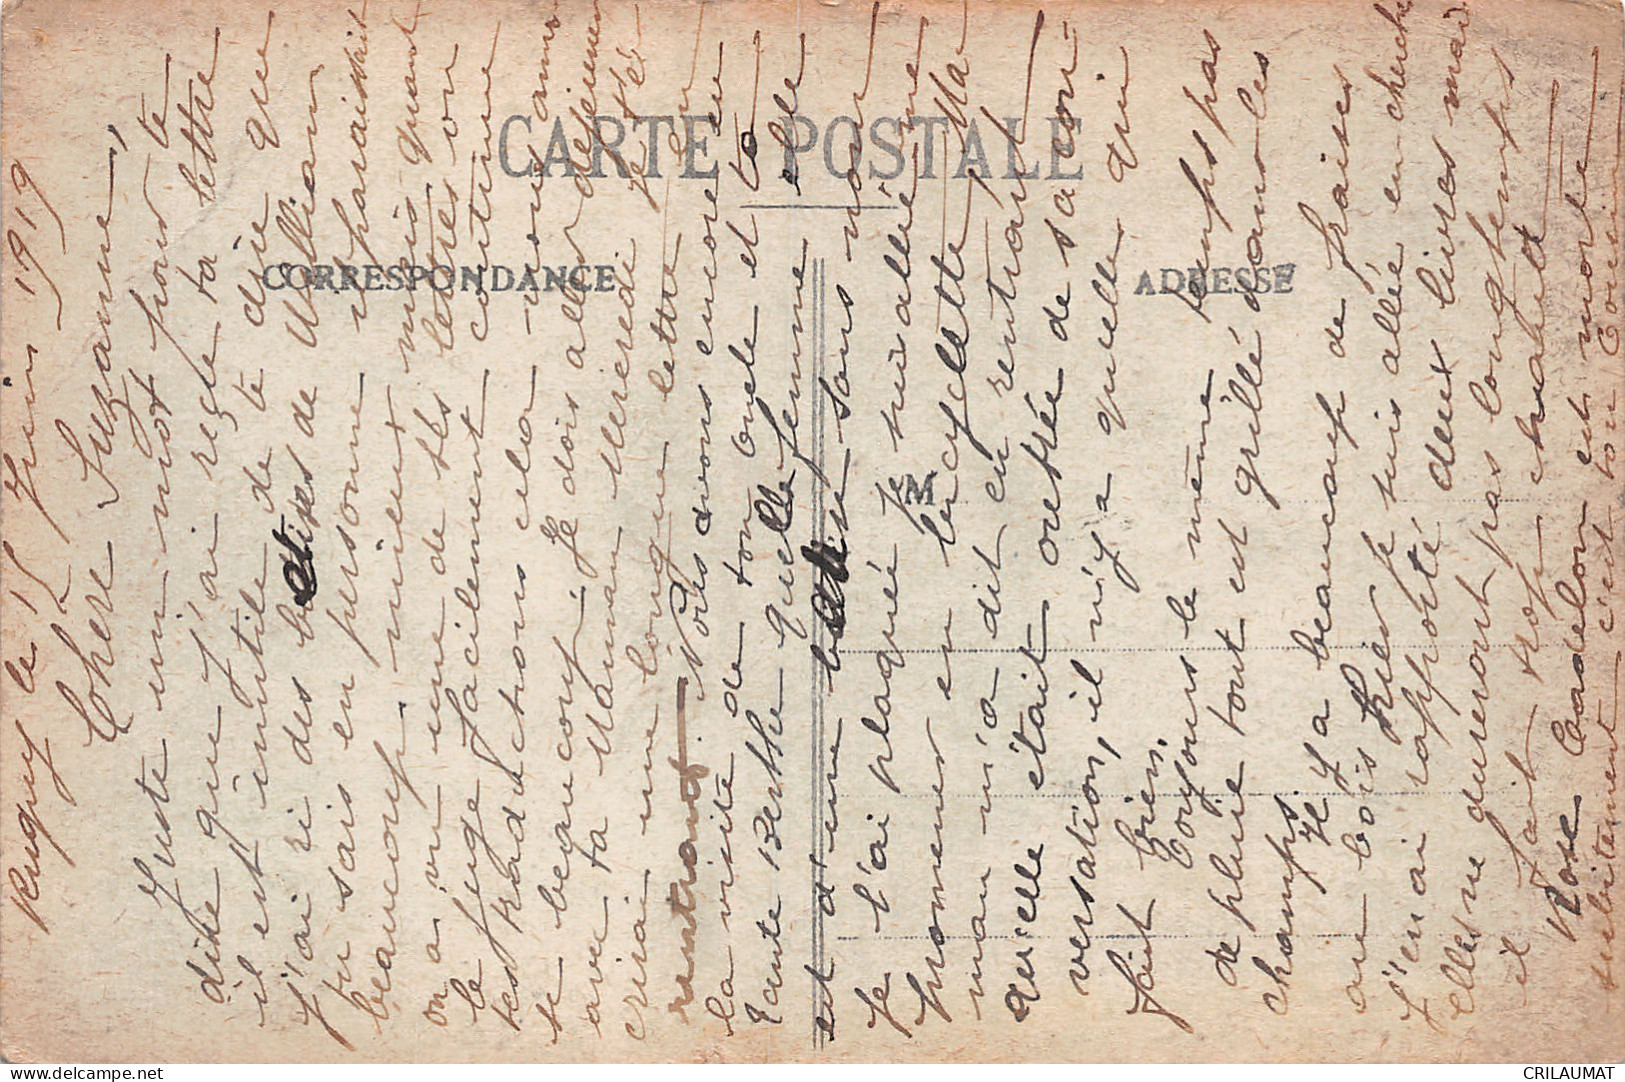 CARTE POSTALE
CORRESPONDANCE
ADRESSE
Rugny le 5 Juin 1919
Chère Suzanne,
Juste un mot pour te
dire que j'ai reçu ta lettre
il est inutile de te dire que
j'ai ri des bêtises de William
tu sais en personne il paraissait
beaucoup mieux mais quand
on a vu une de ses lettres on
le juge facilement continue
tes traductions cela vous amuse
beaucoup. Je dois aller déjeuner
avec ta Maman Mercredi je t'é-
crirai une longue lettre en
rentrant. Nous avons encore eu
la visite de ton oncle et ta
tante Berthe quelle femme elle
est d'une bêtise sans nom
je l'ai plaquée je suis allée me
promener en bicyclette Ma-
man m'a dit en rentrant
qu'elle était outrée de sa con-
versation, il n'y a qu'elle qui
fait bien.
Toujours le même temps pas
de pluie tout est grillé dans les
champs.
Il y a beaucoup de fraises
au bois hier je suis allée en cherche
j'en ai rapporté deux livres mais
elles ne dureront pas longtemps
il fait trop chaud
Rose Casdelon est morte
subitement c'est ton Cousin
CRILAUMAT